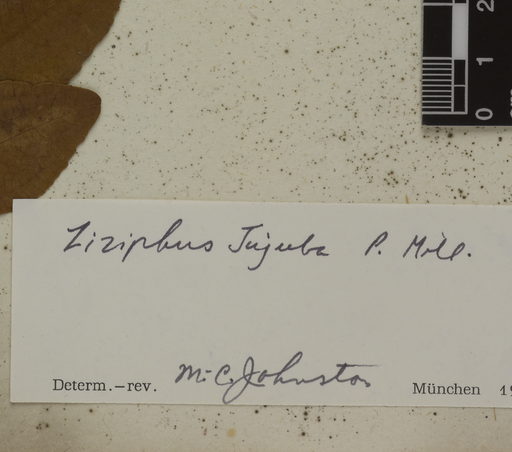 Ziziphus Jujuba P. Mill.
Determ.—rev. M.C. Johnston München 19
0 1 2
cm